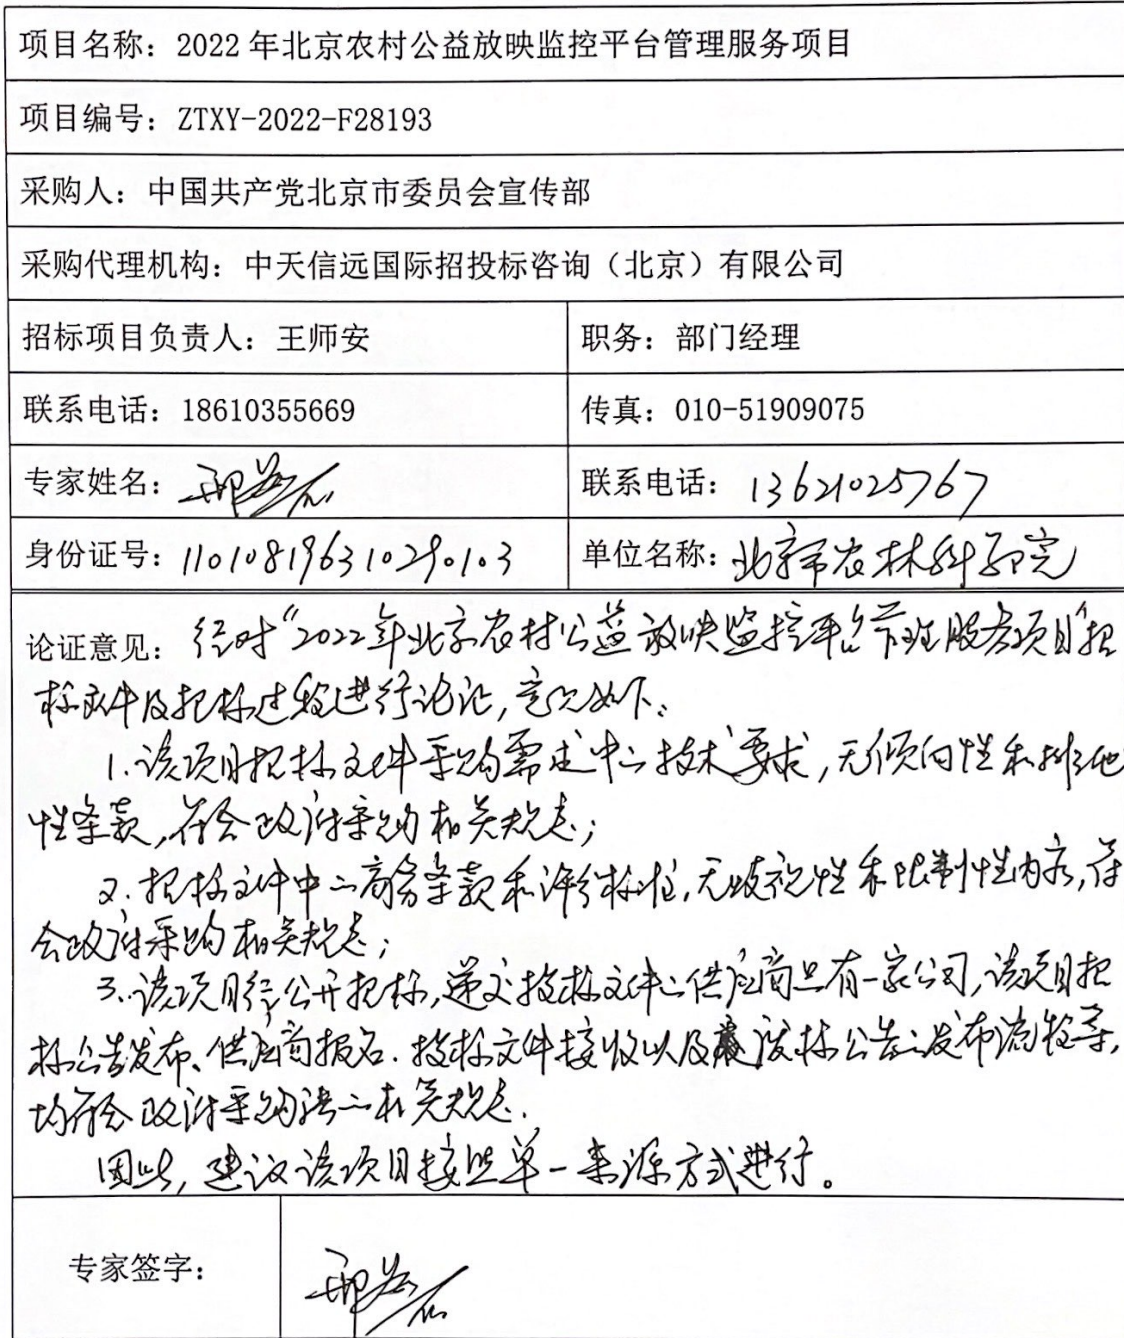 项目名称：2022 年北京农村公益放映监控平台管理服务项目
项目编号：ZTXY-2022-F28193
采购人：中国共产党北京市委员会宣传部
采购代理机构：中天信远国际招投标咨询（北京）有限公司
招标项目负责人：王师安
职务：部门经理
联系电话：18610355669
传真：010-51909075
专家姓名：
联系电话：13621025767
身份证号：110108196310290103
单位名称：北京市农林科学院
论证意见：经对“2022年北京农村公益放映监控平台管理服务项目”招
标文件及招标过程进行论证，意见如下：
1.该项目招标文件采购需求中之技术要求，无倾向性和排他
性条款，符合政府采购相关规定；
2.招标文件中之商务条款和评分标准，无歧视性和限制性内容，符
合政府采购相关规定；
3.该项目经公开招标，递交投标文件之供应商只有一家公司，该项目招
标公告发布、供应商报名、投标文件接收以及废标公告之发布流程等，
均符合政府采购法之相关规定.
因此，建议该项目按照单一来源方式进行。
专家签字：